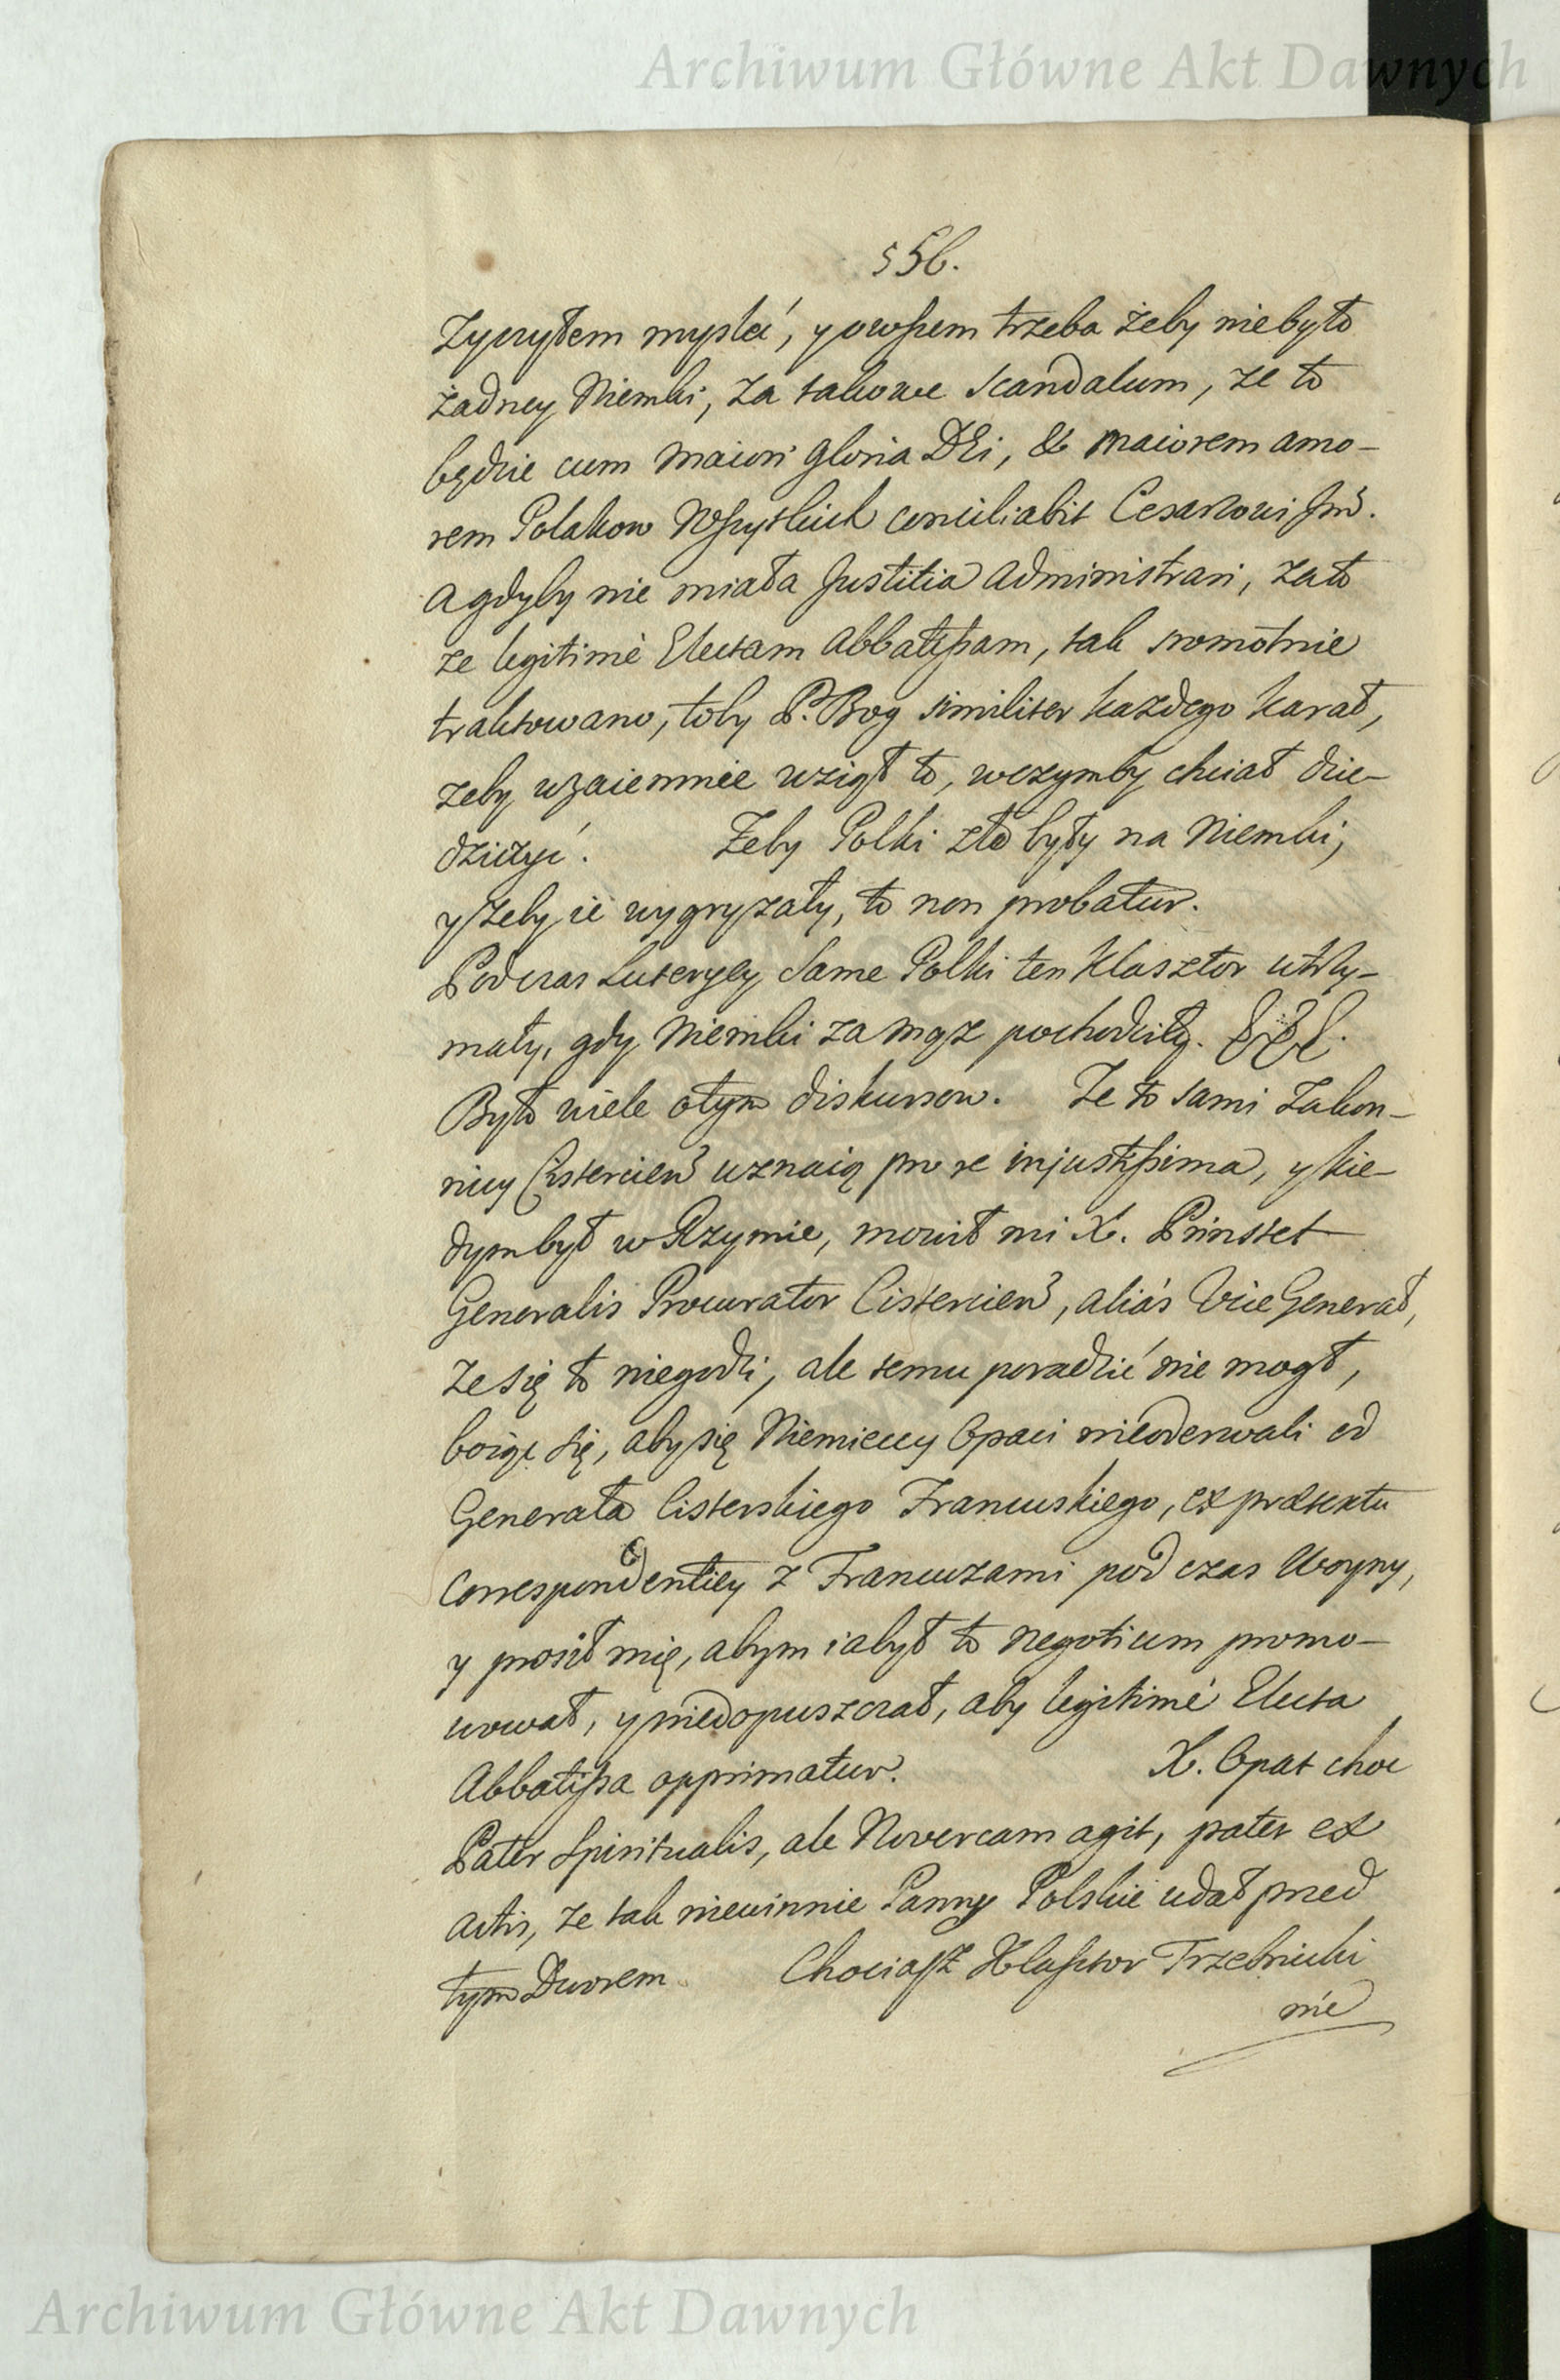 Archiwum Główne Akt Dawnych
556.
Zyczyłem mysleć, y owszem trzeba żeby niebyło
żadney Niemki, za takowe Scandalum, ze to
będzie cum maiori gloria DEi, & maiorem amo-
rem Polakow Wszystkich conciliabit Cesarzowi Jmć.
a gdyby nie miała Justitia administrari, zato
ze legitimè Electam Abbatissam, tak sromotnie
traktowano, toby P. Bog similiter kazdego karał,
zeby wzaiemnie wziął to, wczymby chciał dzie-
dziczyć. Zeby Polki złe były na Niemki,
y żeby ie wygryzały, to non probatur.
Podczas Luteryey same Polki ten Klasztor utrzy-
mały, gdy Niemki za mąz pochodziły.
Było wiele otym diskursow. Ze to sami Zakon-
nicy Cistercien uznaią pro re injustissima, y kie-
dym był w Rzymie, mowił mi X. Prinstet
Generalis Procurator Cistercien, aliás Vice Generał,
ze się to niegodzi, ale temu poradzić nie mogł,
boiąc się, aby się Niemieccy Opaci nieoderwali od
Generała Cisterskiego Francuskiego, ex prætextu
Correspondentiey z Francuzami pod czas Woyny,
y prosił mię, abym iabył to negotium promo-
wował, y niedopuszczał, aby legitimé Electa
Abbatissa opprimatur. X. Opat choc
Pater Spiritualis, ale Novercam agit, patet ex
actis, ze tak niewinnie Panny Polskie udał przed
tym Dworem. Chociasz Klasztor Trzebnicki
nie
Archiwum Główne Akt Dawnych